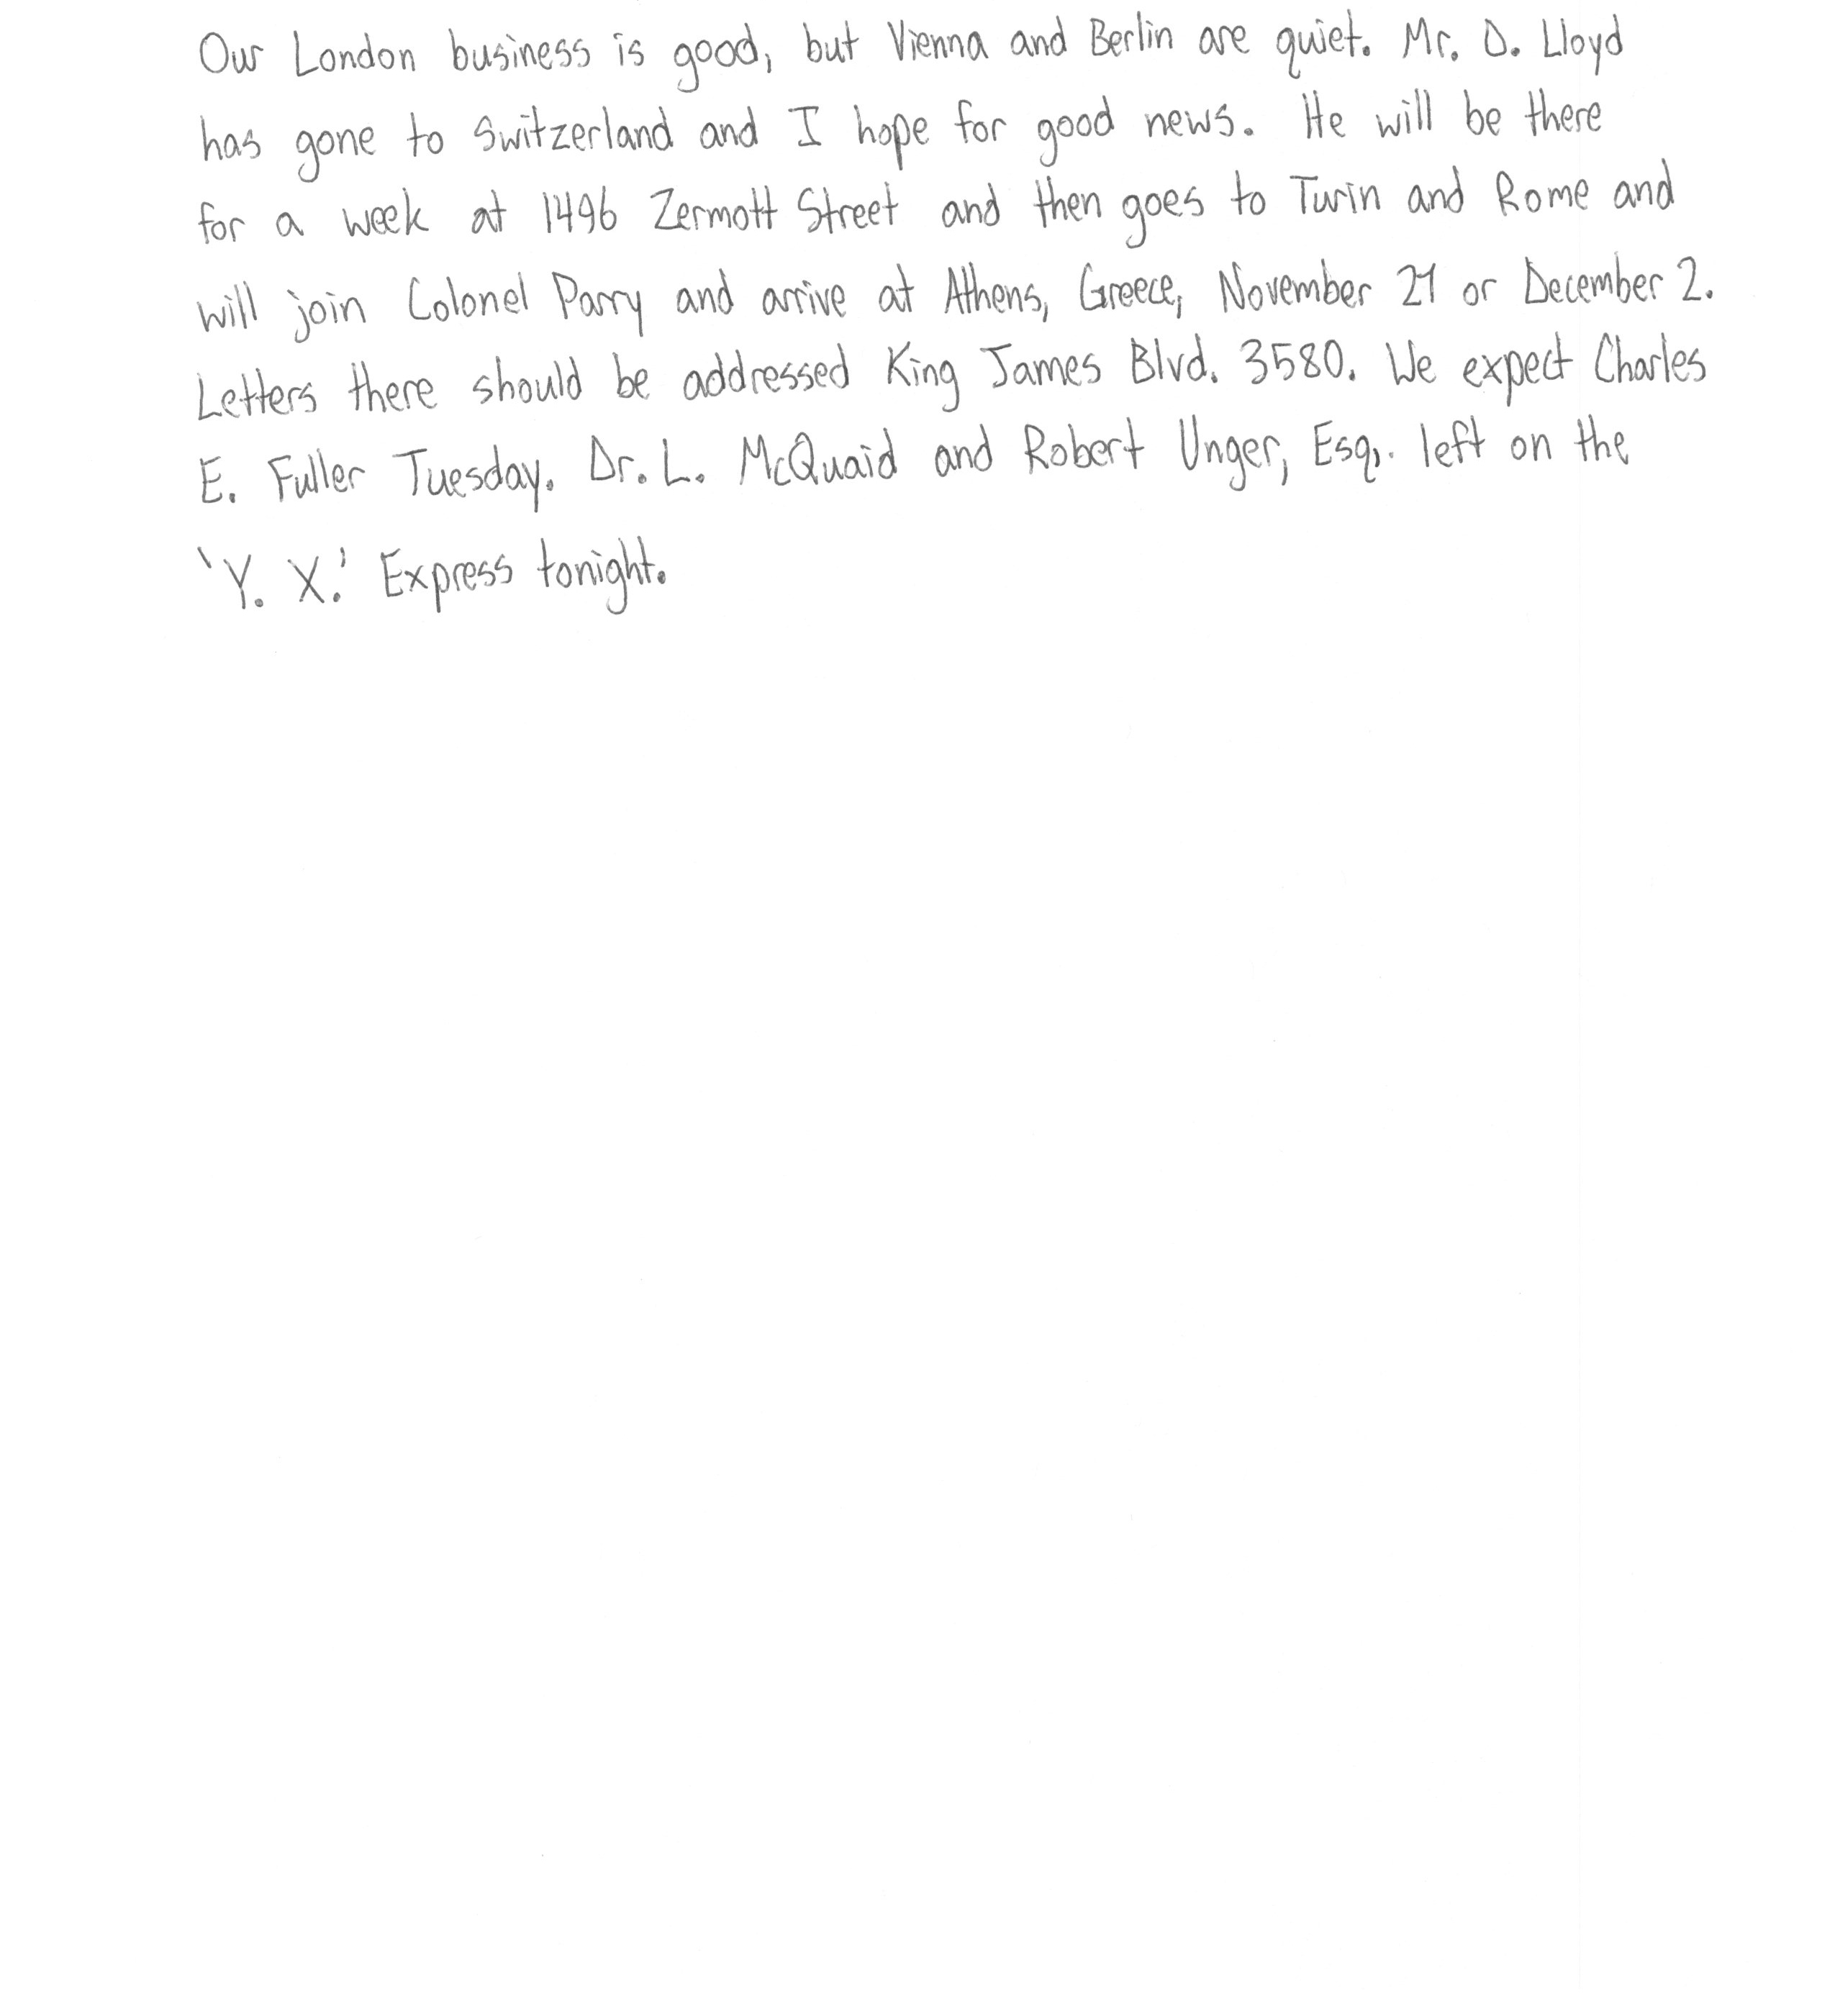 Our London business is good, but Vienna and Berlin are quiet. Mr. D. Lloyd
has gone to Switzerland and I hope for good news. He will be there
for a week at 1496 Zermott Street and then goes to Turin and Rome and
will join Colonel Parry and arrive at Athens, Greece, November 21 or December 2.
Letters there should be addressed King James Blvd. 3580. We expect Charles
E. Fuller Tuesday. Dr. L. McQuaid and Robert Unger, Esq,. left on the
'Y. X.' Express tonight.